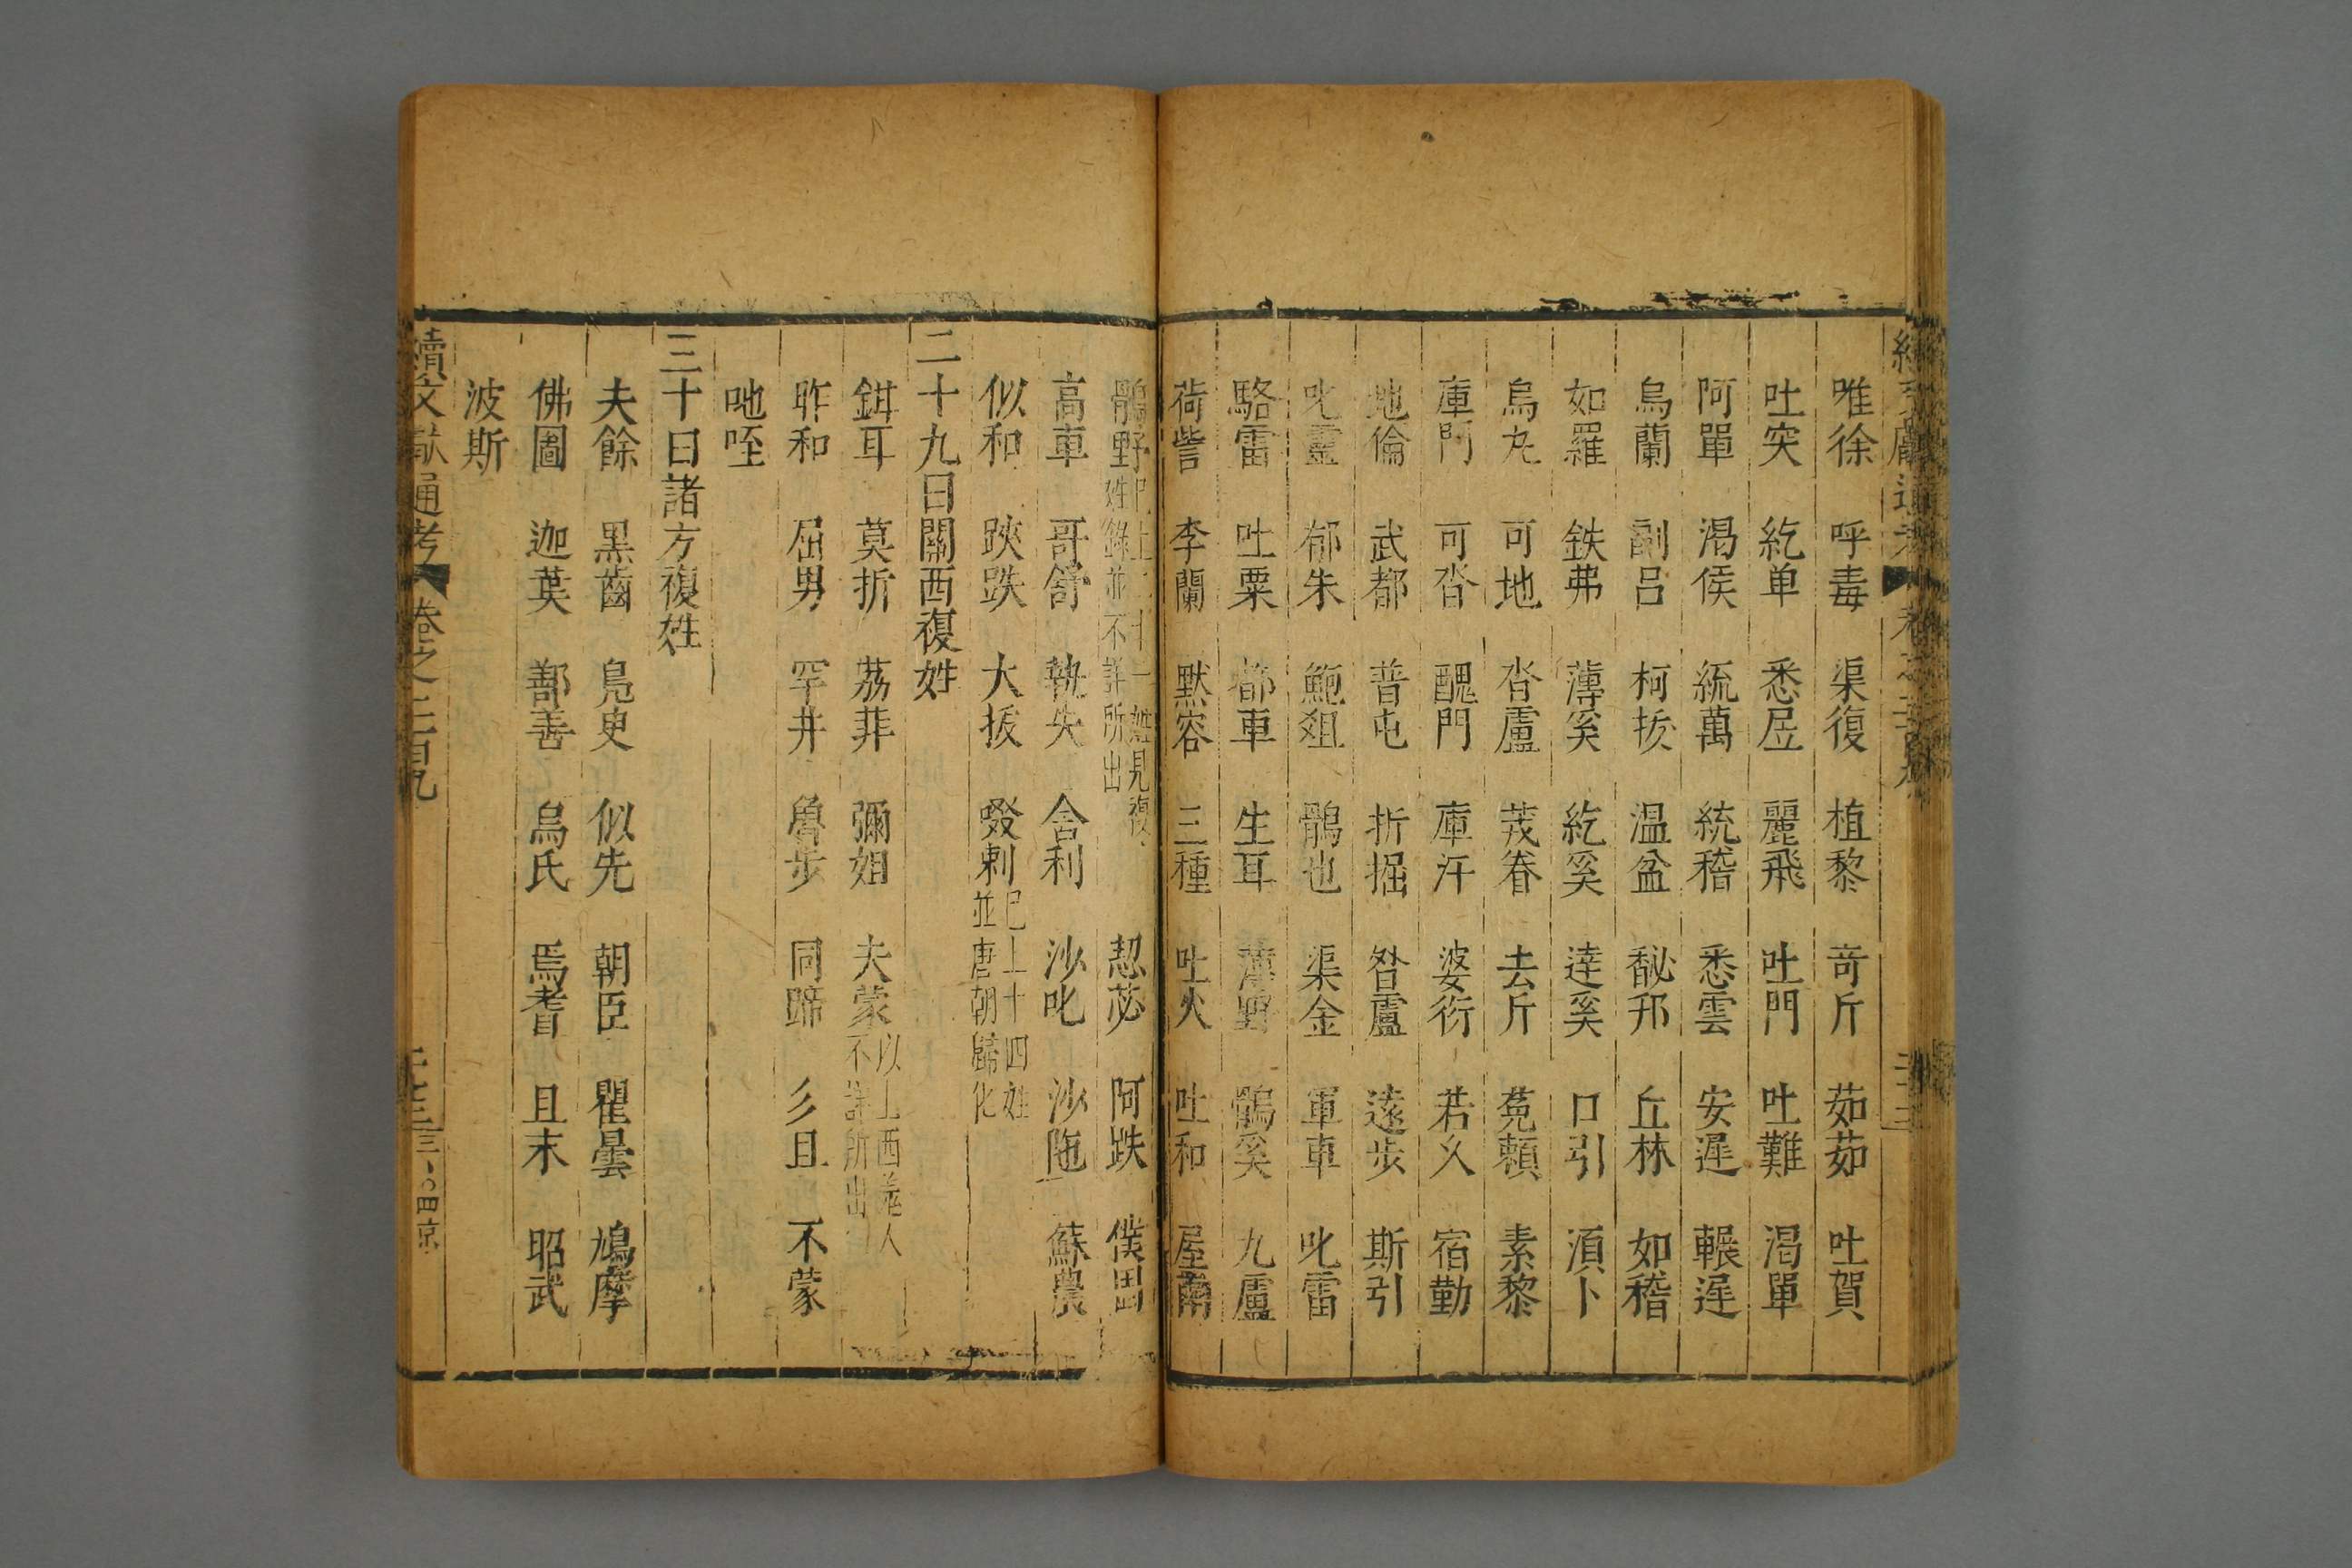 唯徐 呼毒 渠復 植黎 奇斤 茹茹 吐賀
吐突 紇单 悉居 麗飛 吐門 吐難 渴單
阿單 渴侯 統萬 統稽 悉雲 安遲 輾遲
烏蘭 副呂 柯拔 溫盆 秘邘 丘林 如稽
如羅 鉄弗 薄奚 紇奚 達奚 口引 湏卜
烏丸 可地 沓盧 茂眷 去斤 菟賴 素黎
庫門 可沓 醜門 庫汗 婆衍 若久 宿勤
地倫 武都 普屯 折掘 沓盧 遠步 斯引
叱靈 郁朱 鮑俎 鶻也 渠金 軍車 叱雷
駱雷 吐粟 都車 生耳 薄野 鶻奚 九盧
荷訾 李蘭 黙容 三種 吐火 吐和 屋南
鶻野 已上二十一姓見複姓錄並不詳所出 契苾 阿跌 僕固
高車 哥舒 執失 舍利 沙叱 沙陁 蘇農
似和 𨁂跌 大拔 啜剌 已上十四姓並唐朝歸化
二十九曰關西複姓
鉗耳 莫折 荔菲 彌姐 夫蒙 以上西羌人不詳所出
昨和 屈男 罕井 魯步 同蹄 彡且 不蒙
吔咥
三十曰諸方複姓
夫餘 黒齒 鳬臾 似先 朝臣 瞿曇 鳩摩
佛圖 迦葉 鄯善 烏氏 焉耆 且末 昭武
波斯
續文獻通考 卷之二百九